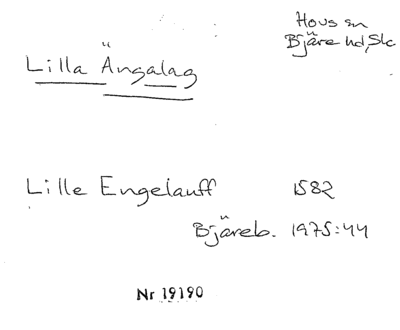 Hovs sn
Bjäre hd, Skå
Lilla Ängalag
Lille Engelauff 1582
Bjäreb. 1975:44
Nr 19190